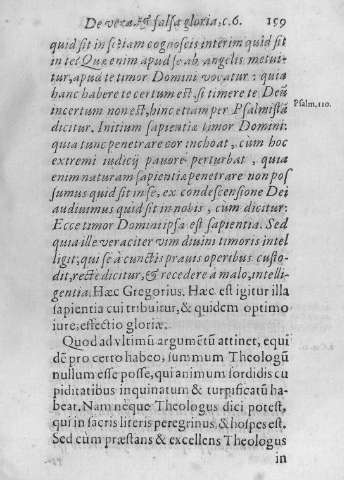 De vera, & falsa gloria, c.6. 159
quid sit in se, tam cognoscis interim quid sit
in te: Quæ enim apud se ab angelis metui-
tur, apud te timor Domini vocatur: quia
hanc habere te certum est, si timere te Deū
incertum non est, hinc etiam per Psalmistã
dicitur. Initium sapientiæ timor Domini:
Psalm, 110.
quia tunc penetrare cor inchoat, cùm hoc
extremi iudicij pauore perturbat, quia
enim naturam sapientia penetrare non pos
sumus quid sit in se, ex condescensione Dei
audiuimus quid sit in nobis, cùm dicitur:
Ecce timor Domini ipsa est sapientia. Sed
quia ille veraciter vim diuini timoris intel
ligit, qui se à cunctis prauis operibus custo-
dit, rectè dicitur, & recedere à malo, intelli-
gentia. Hæc Gregorius. Hæc est igitur illa
sapientia cui tribuitur, & quidem optimo
iure, effectio gloriæ.
Quod ad vltimū argumētū attinet, equi
dē pro certo habeo, summum Theologū
nullum esse posse, qui animum sordidis cu
piditatibus inquinatum & turpificatū ha-
beat. Nam neque Theologus dici potest,
qui in sacris literis peregrinus, & hospes est.
Sed cùm præstans & excellens Theologus
in